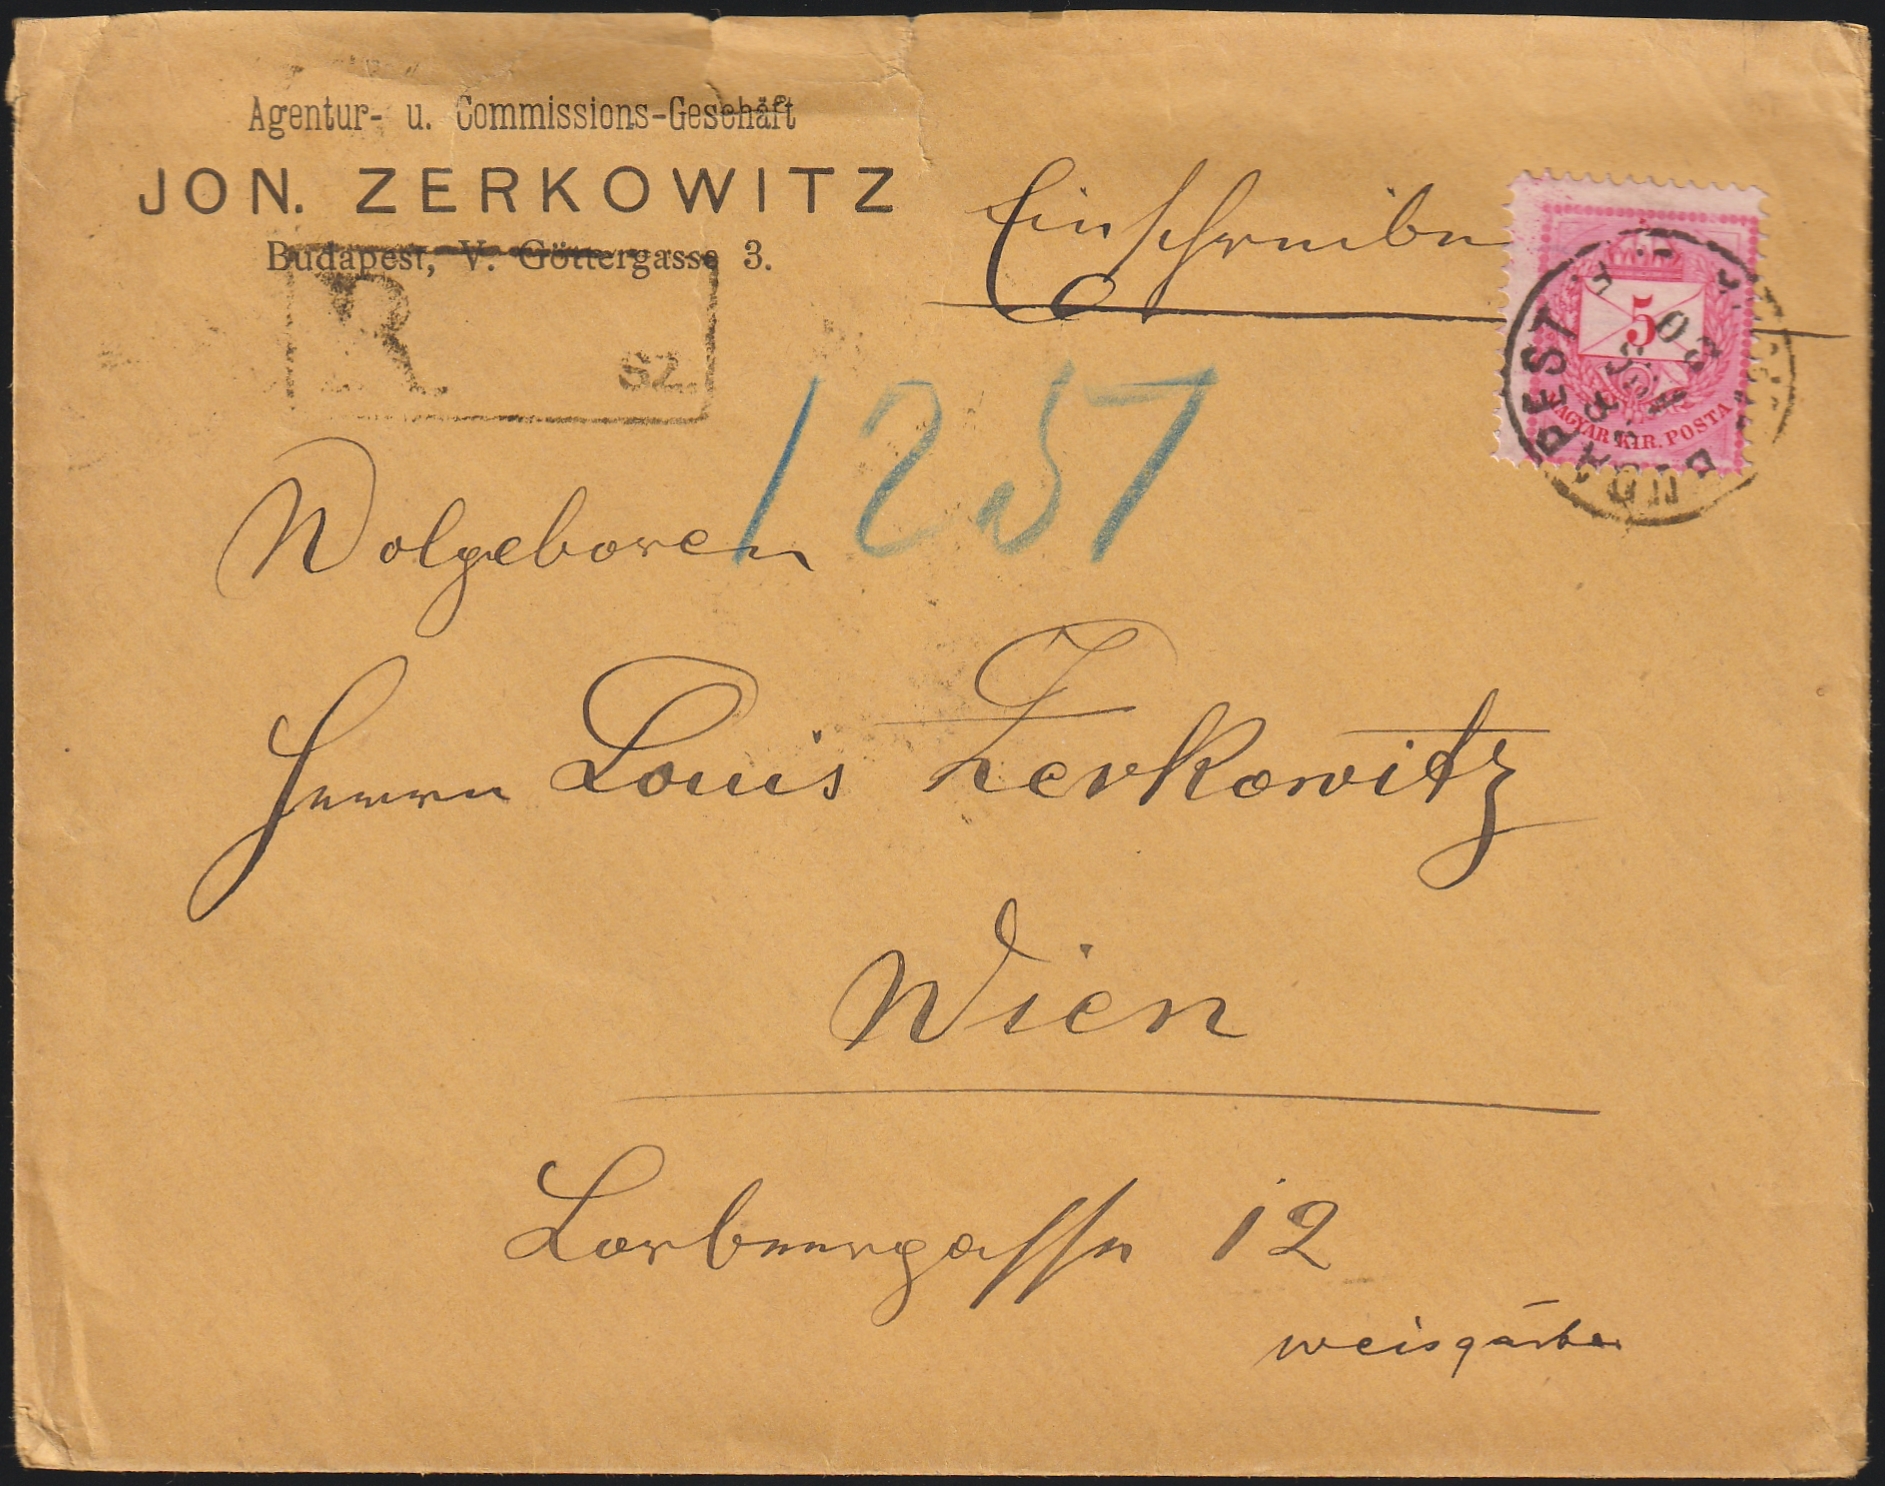 Agentur- u. Commissions-Geschäft
JON. ZERKOWITZ
Budapest, V. Göttergasse 3.
Einschreiben
R.
1257
5
MAGYAR KIR. POSTA
BUDAPEST
Wolgeboren
Herrn Louis Zerkowitz
Wien
Lorbeergasse 12
weisgärber